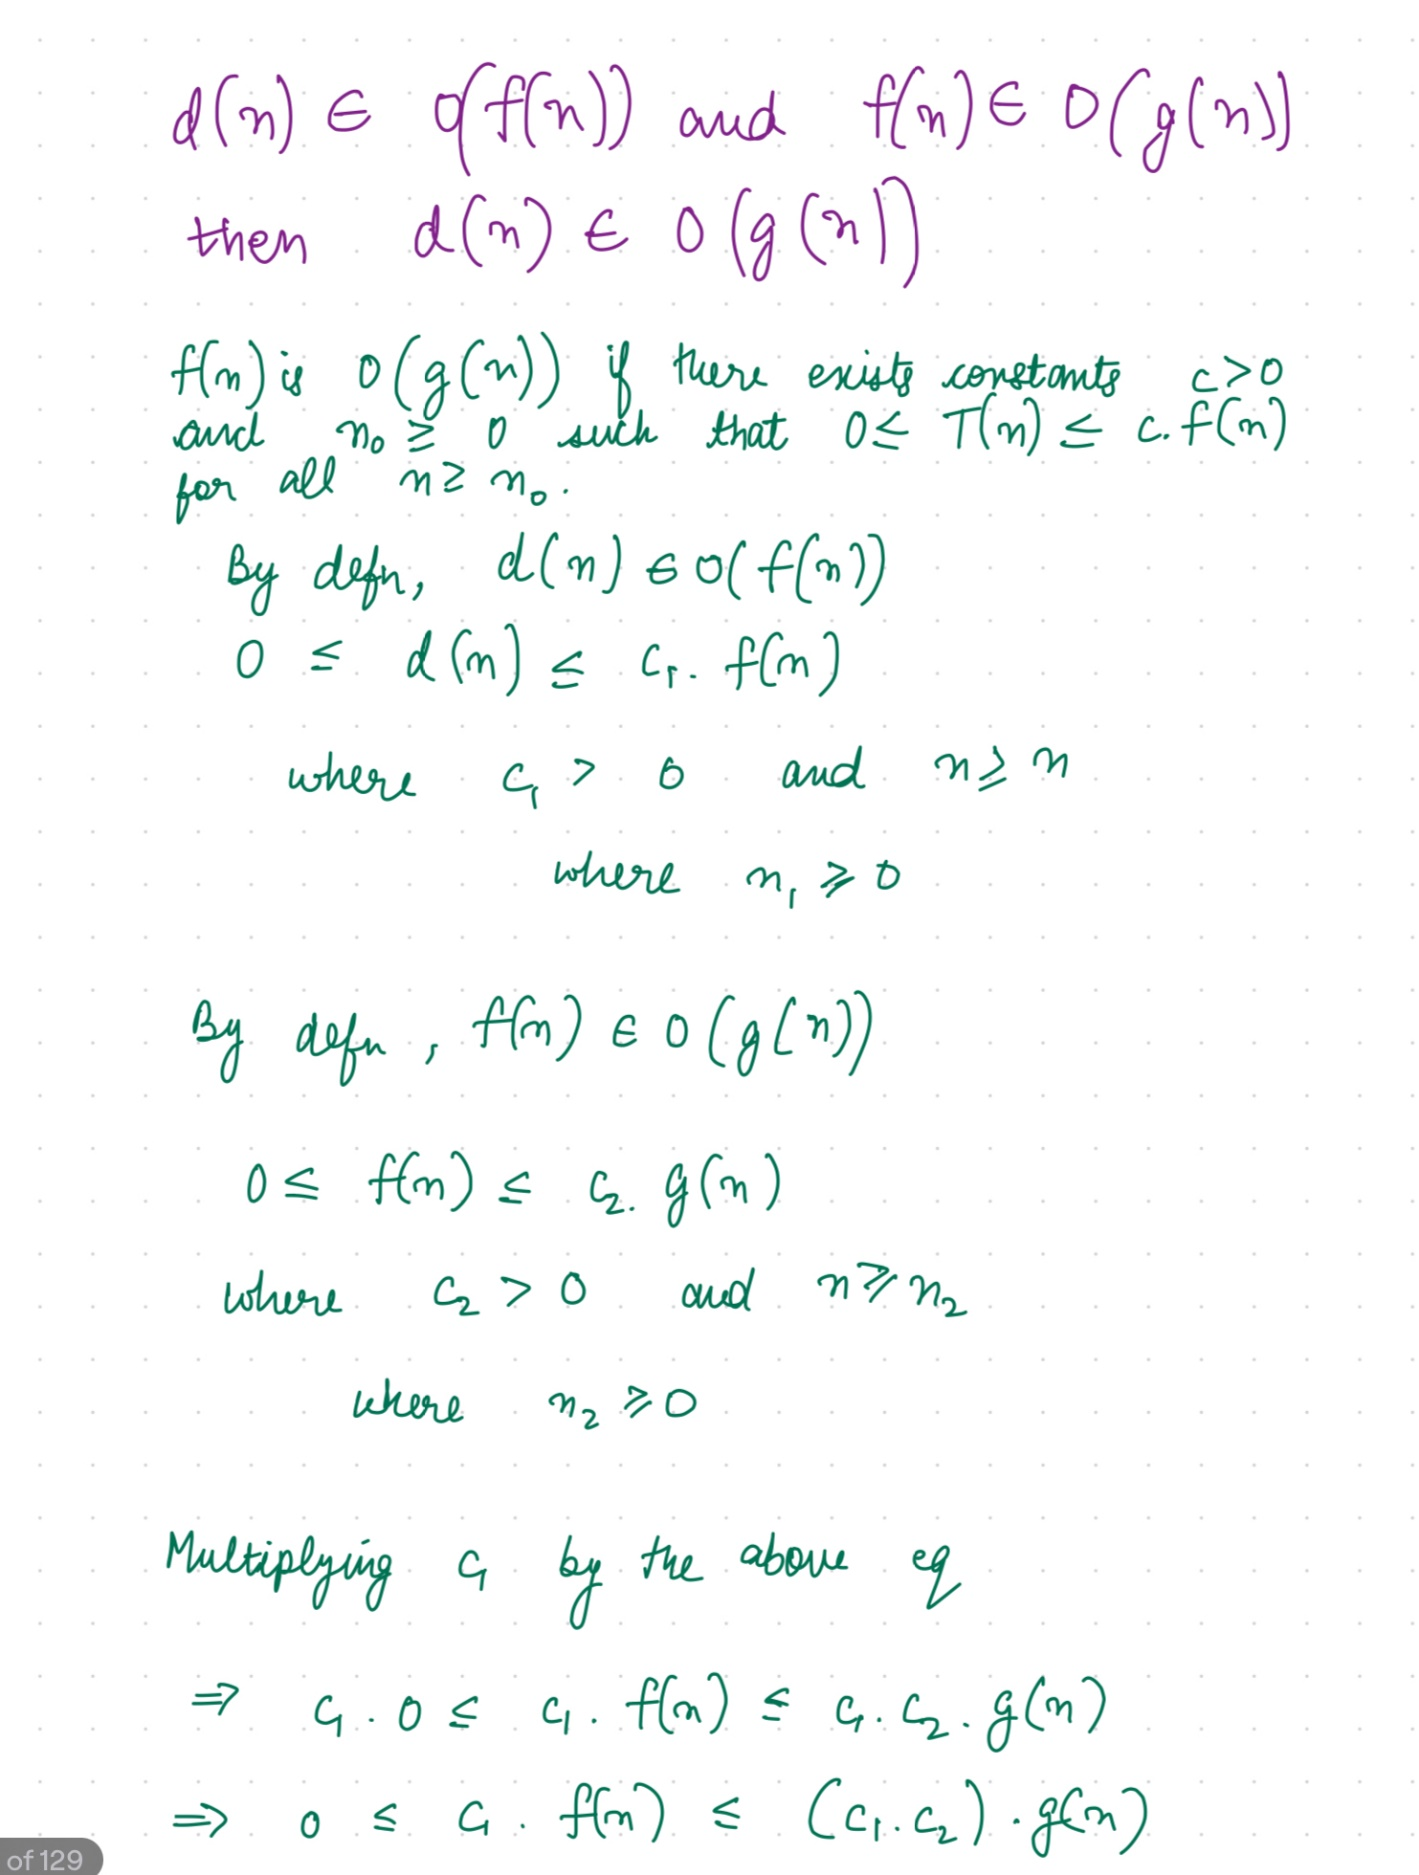 d(n) ∈ O(f(n)) and f(n) ∈ O(g(n))
then d(n) ∈ O(g(n))
f(n) is O(g(n)) if there exists constants c>0
and n₀ ≥ 0 such that 0 ≤ T(n) ≤ c. f(n)
for all n ≥ n₀.
By defn, d(n) ∈ O(f(n))
0 ≤ d(n) ≤ c₁. f(n)
where c₁ > 0 and n ⩾ n
where n₁ ⩾ 0
By defn, f(n) ∈ O(g(n))
0 ≤ f(n) ≤ c₂. g(n)
where c₂ > 0 and n ⩾ n₂
where n₂ ⩾ 0
Multiplying c₁ by the above eq
⇒ c₁ . 0 ≤ c₁ . f(n) ≤ c₁ . c₂ . g(n)
⇒ 0 ≤ c₁ . f(n) ≤ (c₁ . c₂) . g(n)
of 129